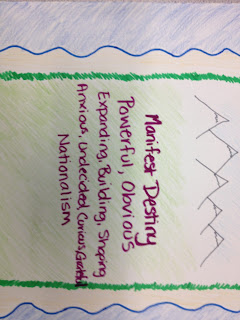 Manifest Destiny
Powerful, Obvious
Expanding, Building, Shaping
Anxious, Undecided, Curious, Grateful
Nationalism